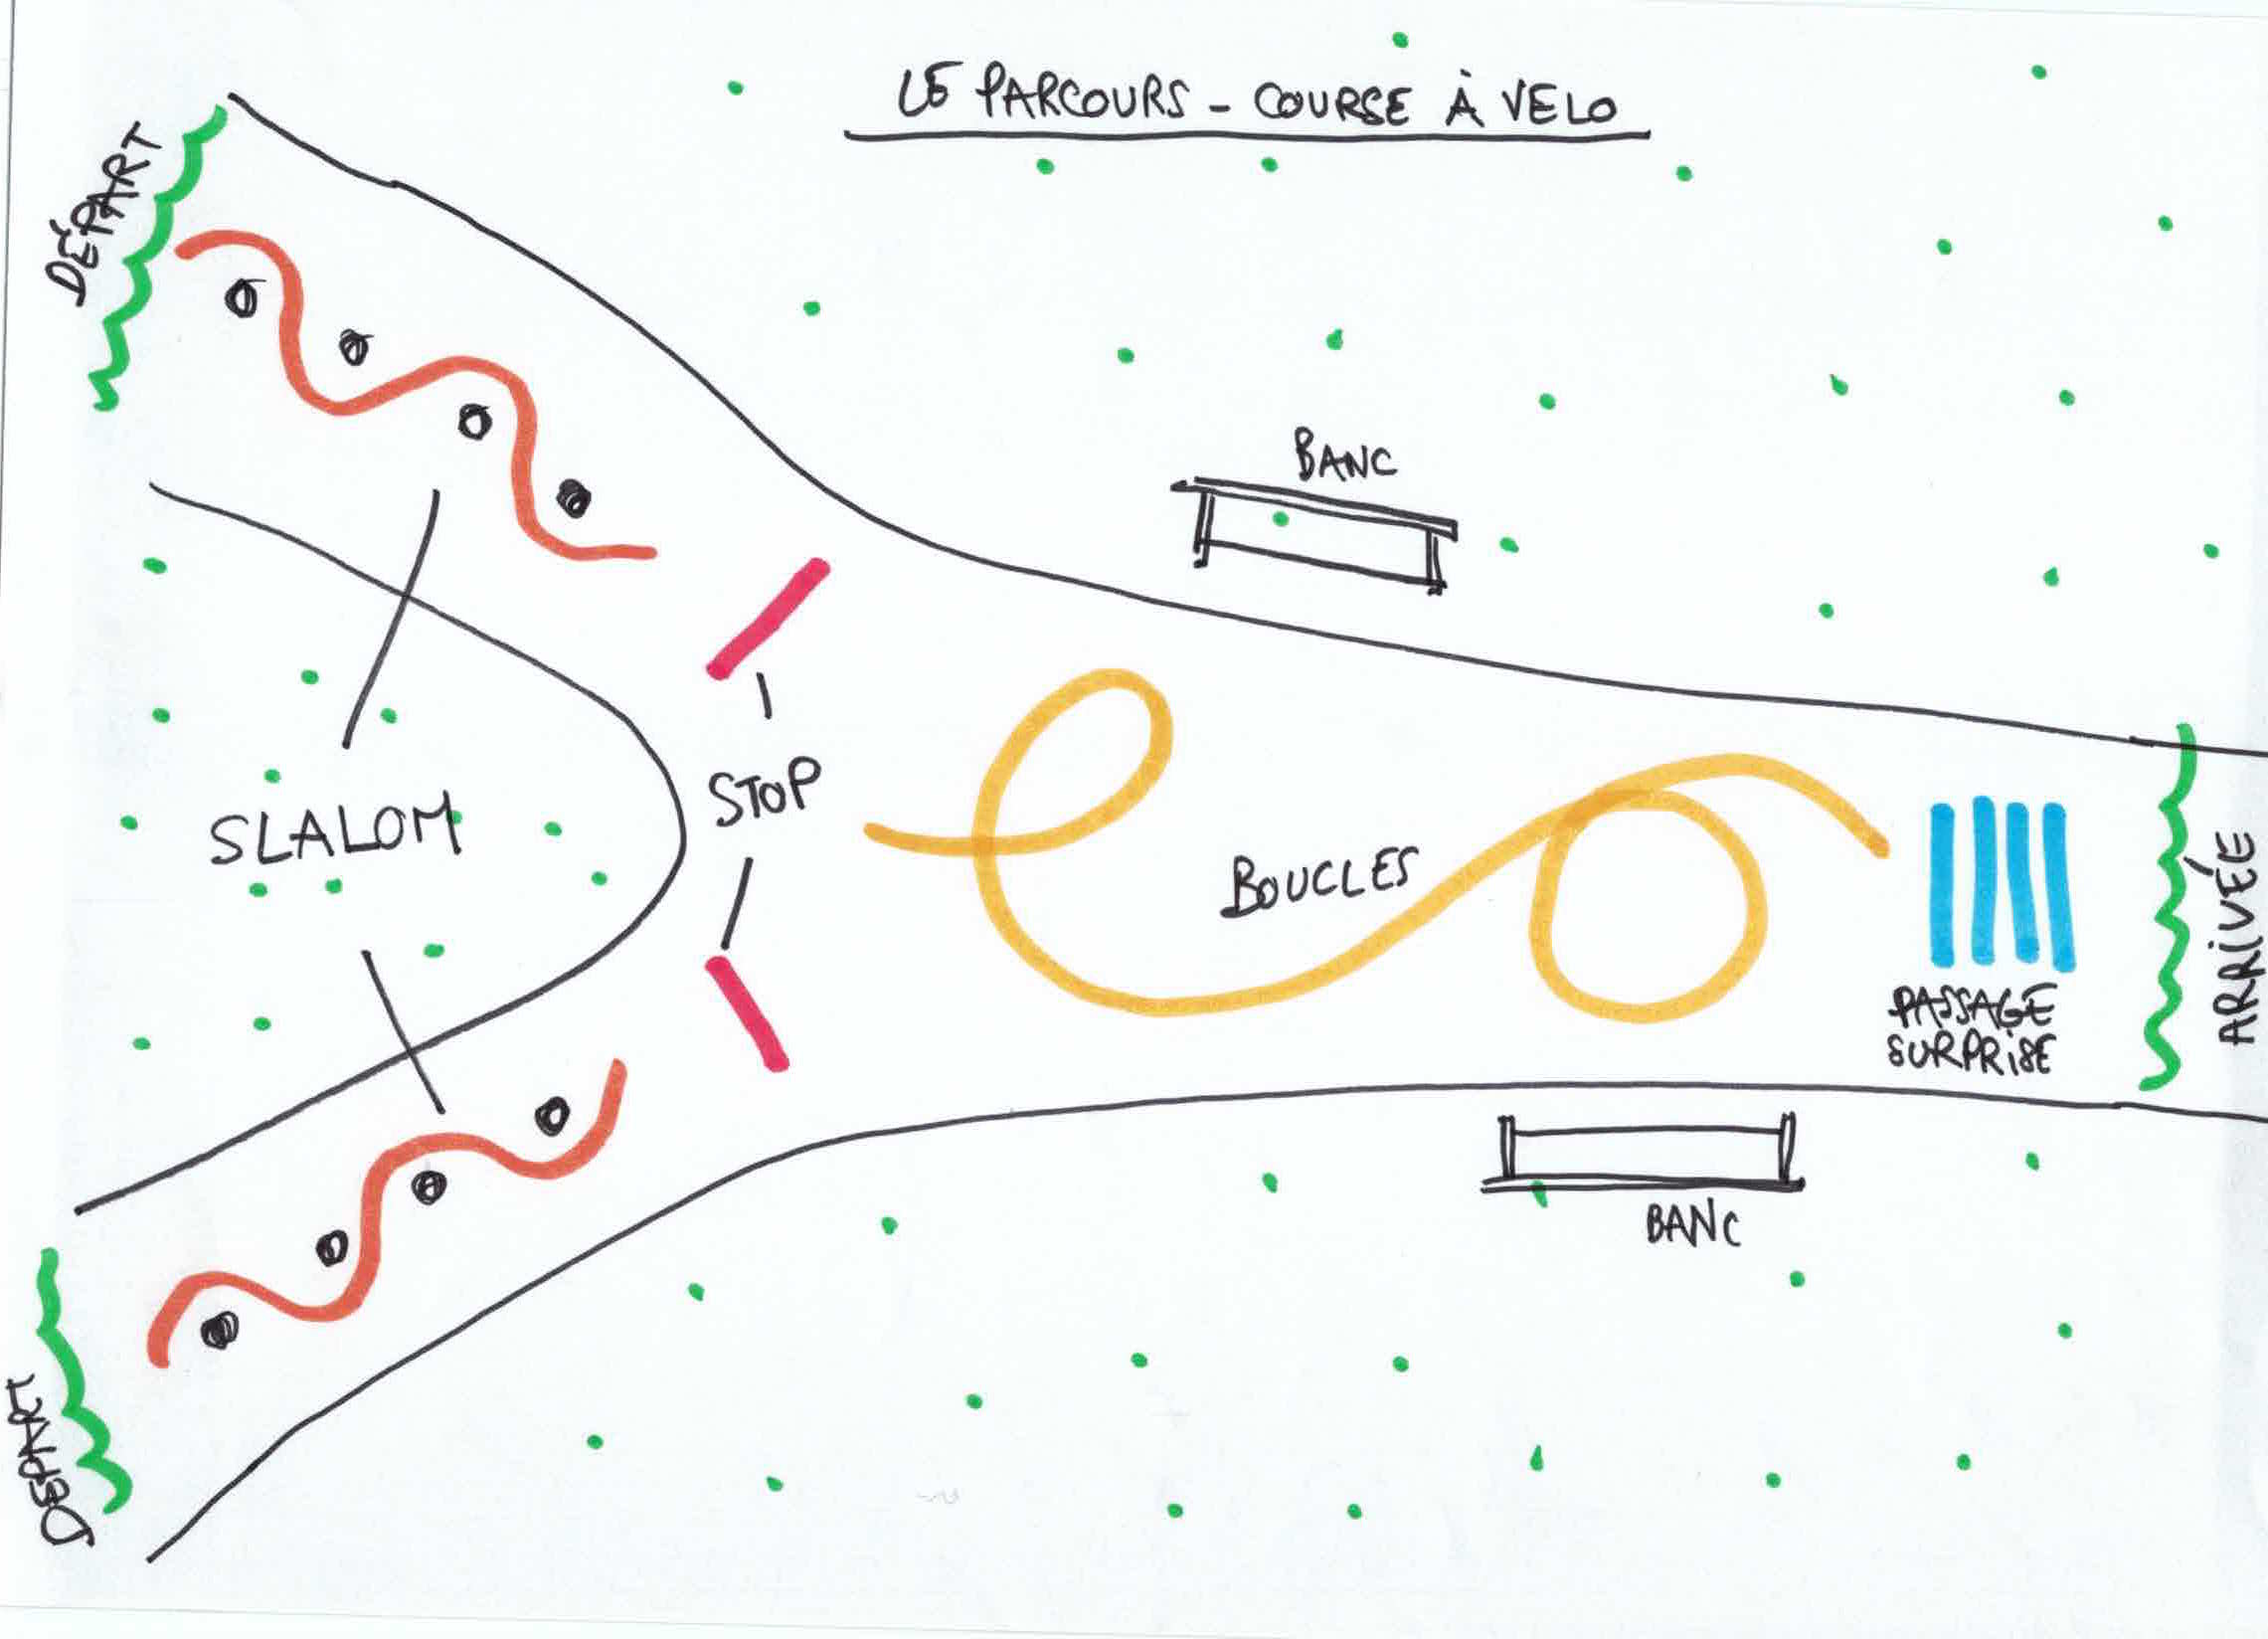 LE PARCOURS - COURSE À VELO
DÉPART
BANC
STOP
SLALOM
BOUCLES
PASSAGE
SURPRISE
ARRIVÉE
BANC
DEPART